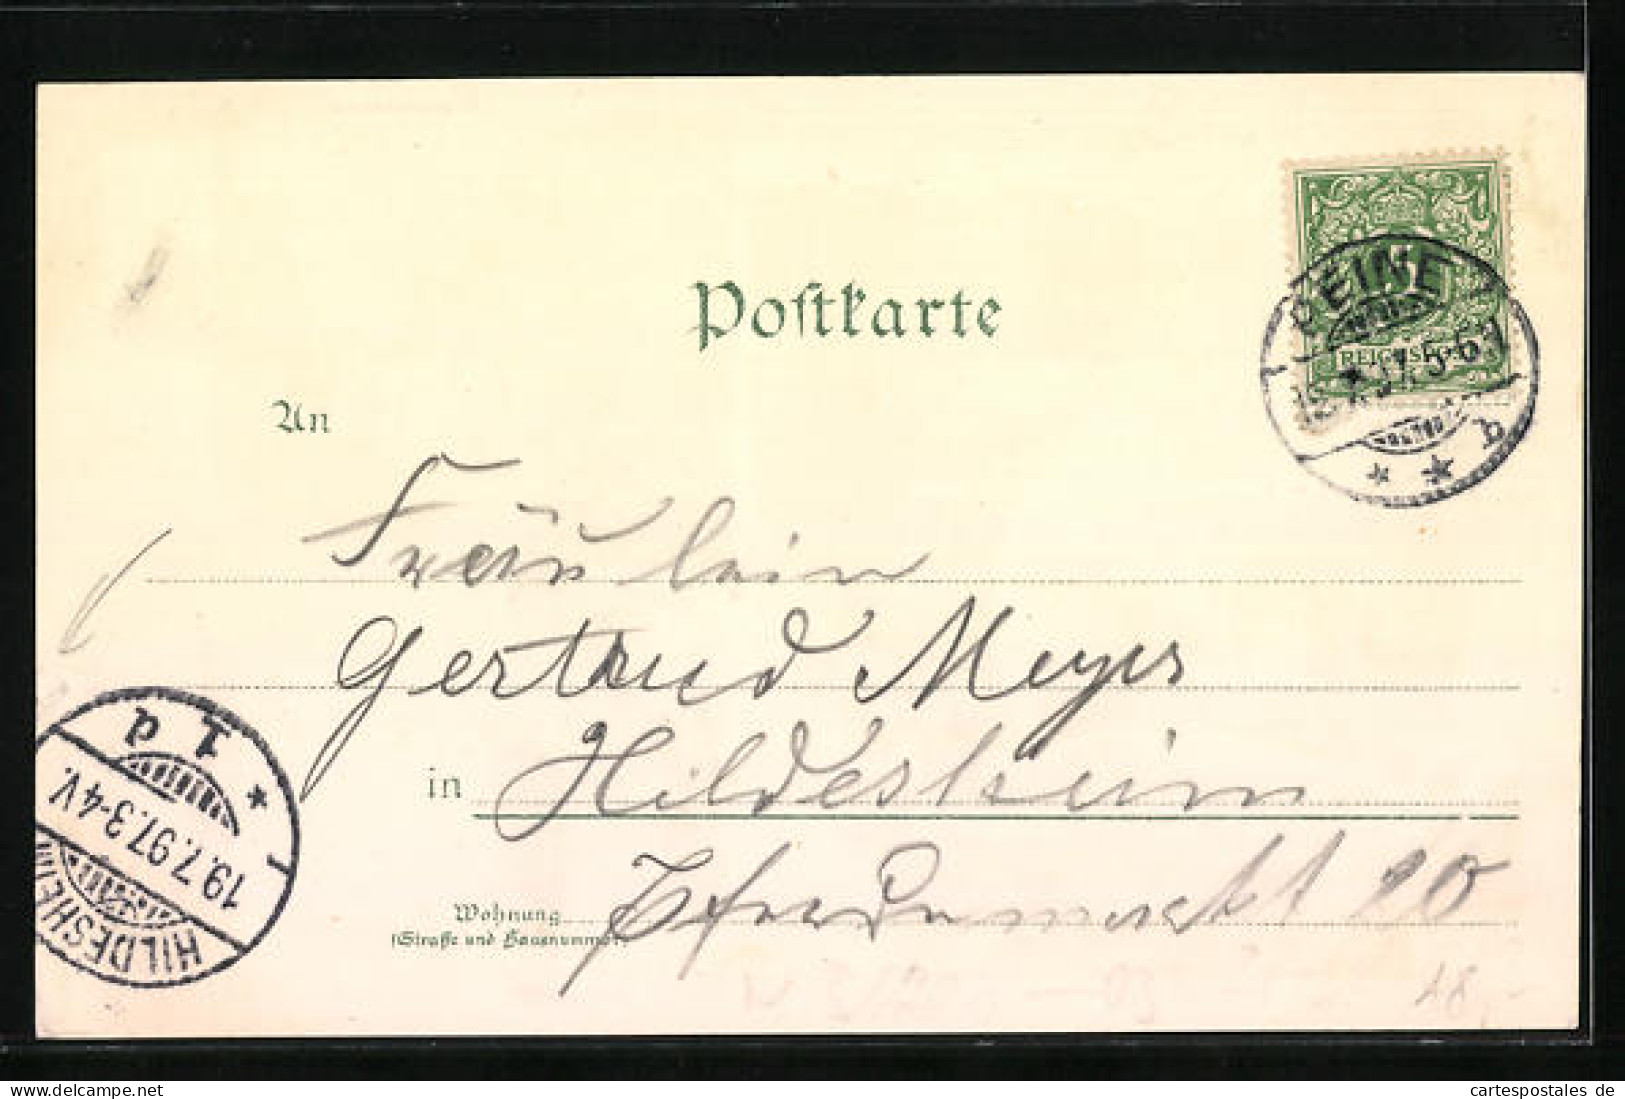 Postkarte
An
PEINE
REICHSPOST
5-6N
Fräulein
Gertrud Meyer
in Hildesheim
Wohnung
(Straße und Hausnummer)
Pferdemarkt 20
HILDESHEIM
19.7.97.3-4V.
1d
18,-
cartespostales de